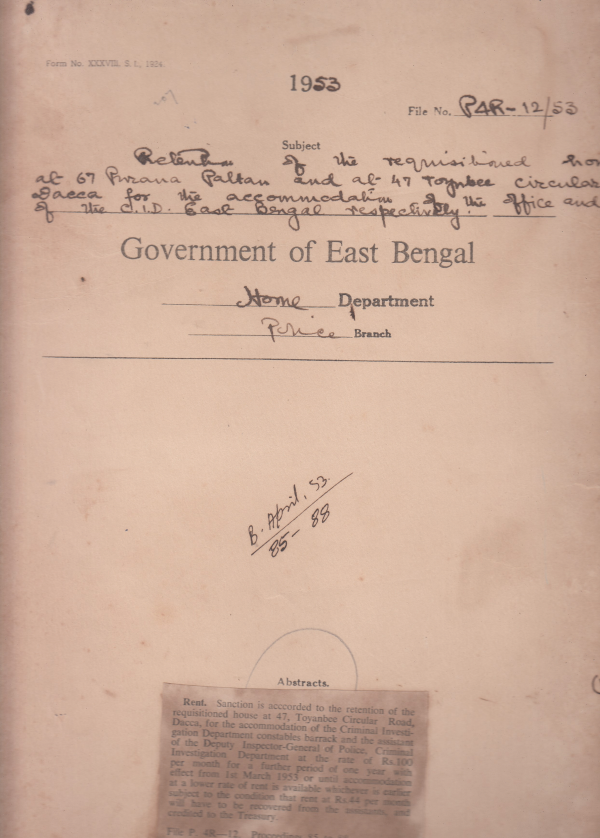 Form No. XXXVIII, S. I., 1924.
1953
File No. P4R-12/53
Subject
Retention of the requisitioned
at 67 Purana Paltan and at 47 Toynbee circular
Dacca for the accommodation of the office and
of the C.I.D. East Bengal respectively.
Government of East Bengal
Home Department
Police Branch
B. April, 53.
85-88
Abstracts.
Rent. Sanction is acccorded to the retention of the
requisitioned house at 47, Toyanbee Circular Road,
Dacca, for the accommodation of the Criminal Investi-
gation Department constables barrack and the assistant
of the Deputy Inspector-General of Police, Criminal
Investigation Department at the rate of Rs.100
per month for a further period of one year with
effect from 1st March 1953 or until accommodation
at a lower rate of rent is available whichever is earlier
subject to the condition that rent at Rs.44 per month
will have to be recovered from the assistants, and
credited to the Treasury.
File P. 4R—12, Proceedings 85 to